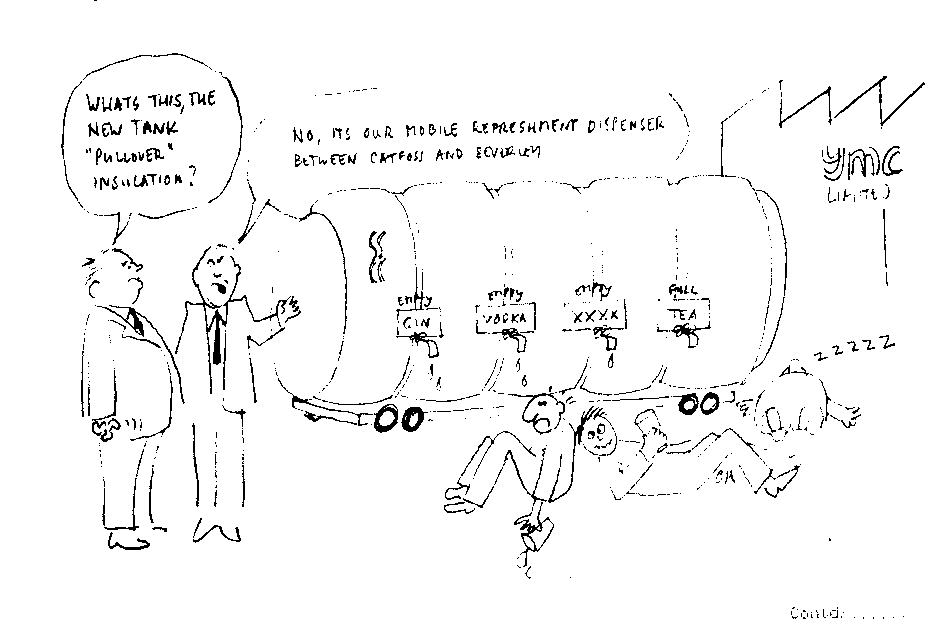 WHATS THIS, THE
NEW TANK
"PULLOVER"
INSULATION?
NO, ITS OUR MOBILE REFRESHMENT DISPENSER
BETWEEN CATFOSS AND BEVERLEY
ymc
EMPTY
GIN
EMPTY
VODKA
EMPTY
XXXX
FULL
TEA
ZZZZZ
Contd.......